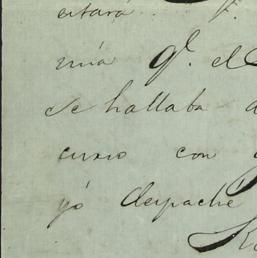 estará.
mia q.^e el
se hallaba
curso con
yó despaché